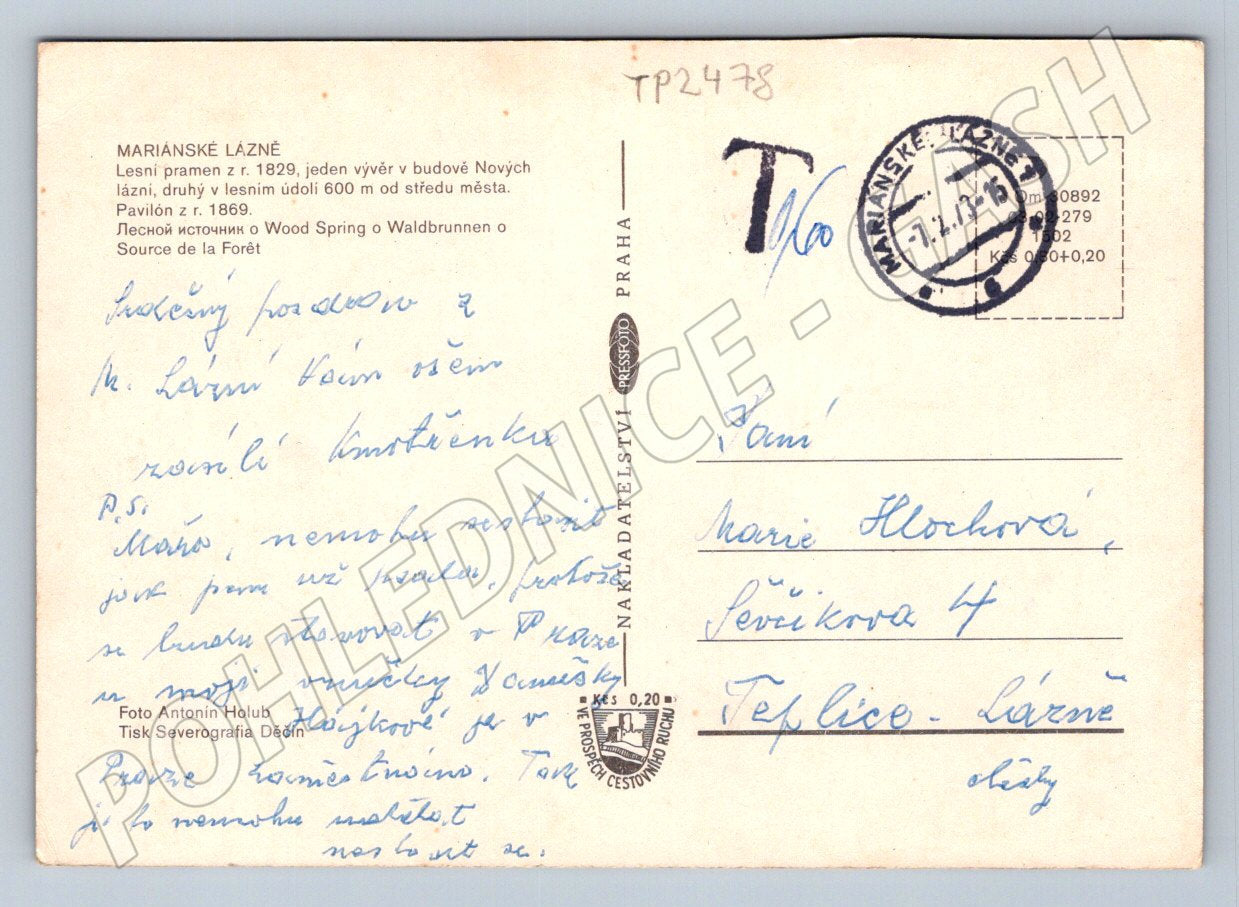 TP2478
MARIÁNSKÉ LÁZNĚ
Lesní pramen z r. 1829, jeden vývěr v budově Nových
lázní, druhý v lesním údolí 600 m od středu města.
Pavilón z r. 1869.
Лесной источник o Wood Spring o Waldbrunnen o
Source de la Forêt
Srdečný pozdrav z
M. Lázní Vám všem
zasílá Kmotřenka
P.S.
Mářo, nemohu se stavit
jak jsem už psala, protože
se budu stavovat v Praze
u mojí vnučky
Hájkové je v
Praze zaměstnána. Tak
jí to nemohu udělat
nestavit se.
Foto Antonín Holub
Tisk Severografia Děčín
NAKLADATELSTVÍ PRESSFOTO PRAHA
Kčs 0,20
VE PROSPĚCH CESTOVNÍHO RUCHU
T
MARIÁNSKÉ LÁZNĚ 1
-7.2.73-16
6
Om 30892
03 02 279
1502
Kčs 0,50+0,20
Paní
Marie Hlochová,
Ševčíkova 4
Teplice - Lázně
Čechy
POHLEDNICE - GASH